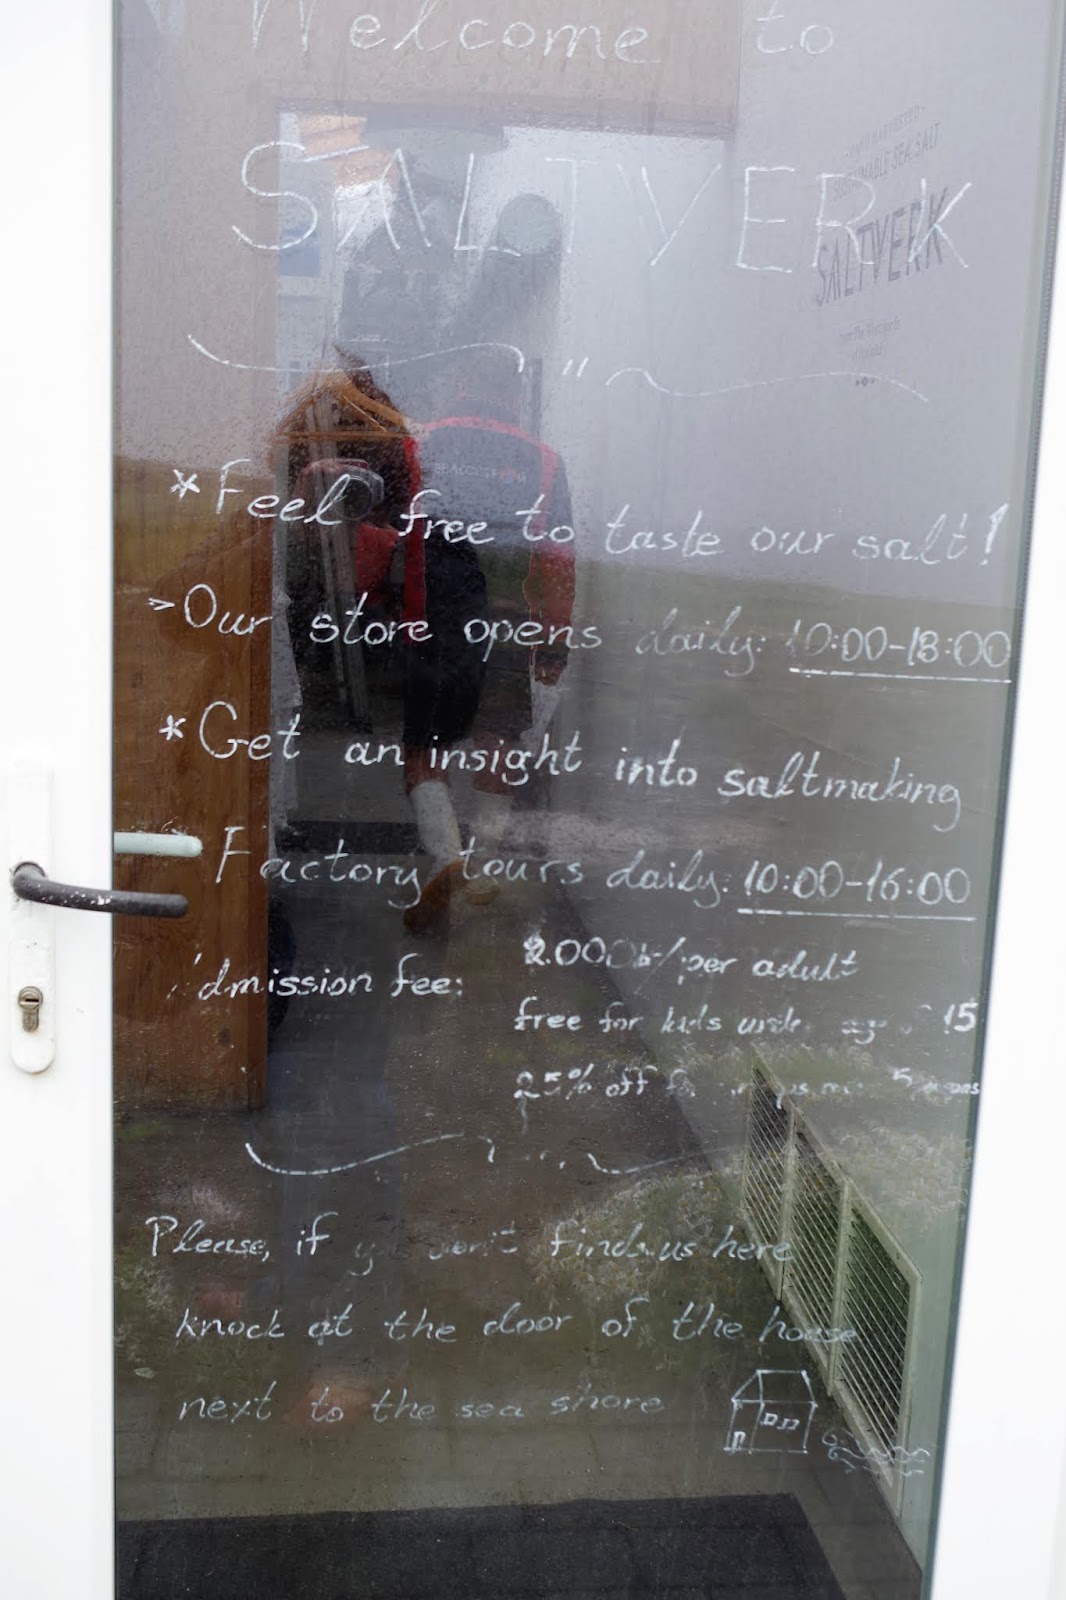 Welcome to
SALTVERK
SUSTAINABLE SEA SALT
SALTVERK
* Feel free to taste our salt!
Our store opens daily: 10:00-18:00
* Get an insight into saltmaking
Factory tours daily: 10:00-16:00
Admission fee: /per adult
free for kids 15
25% off
Please, if you won't find us here
knock at the door of the house
next to the sea shore